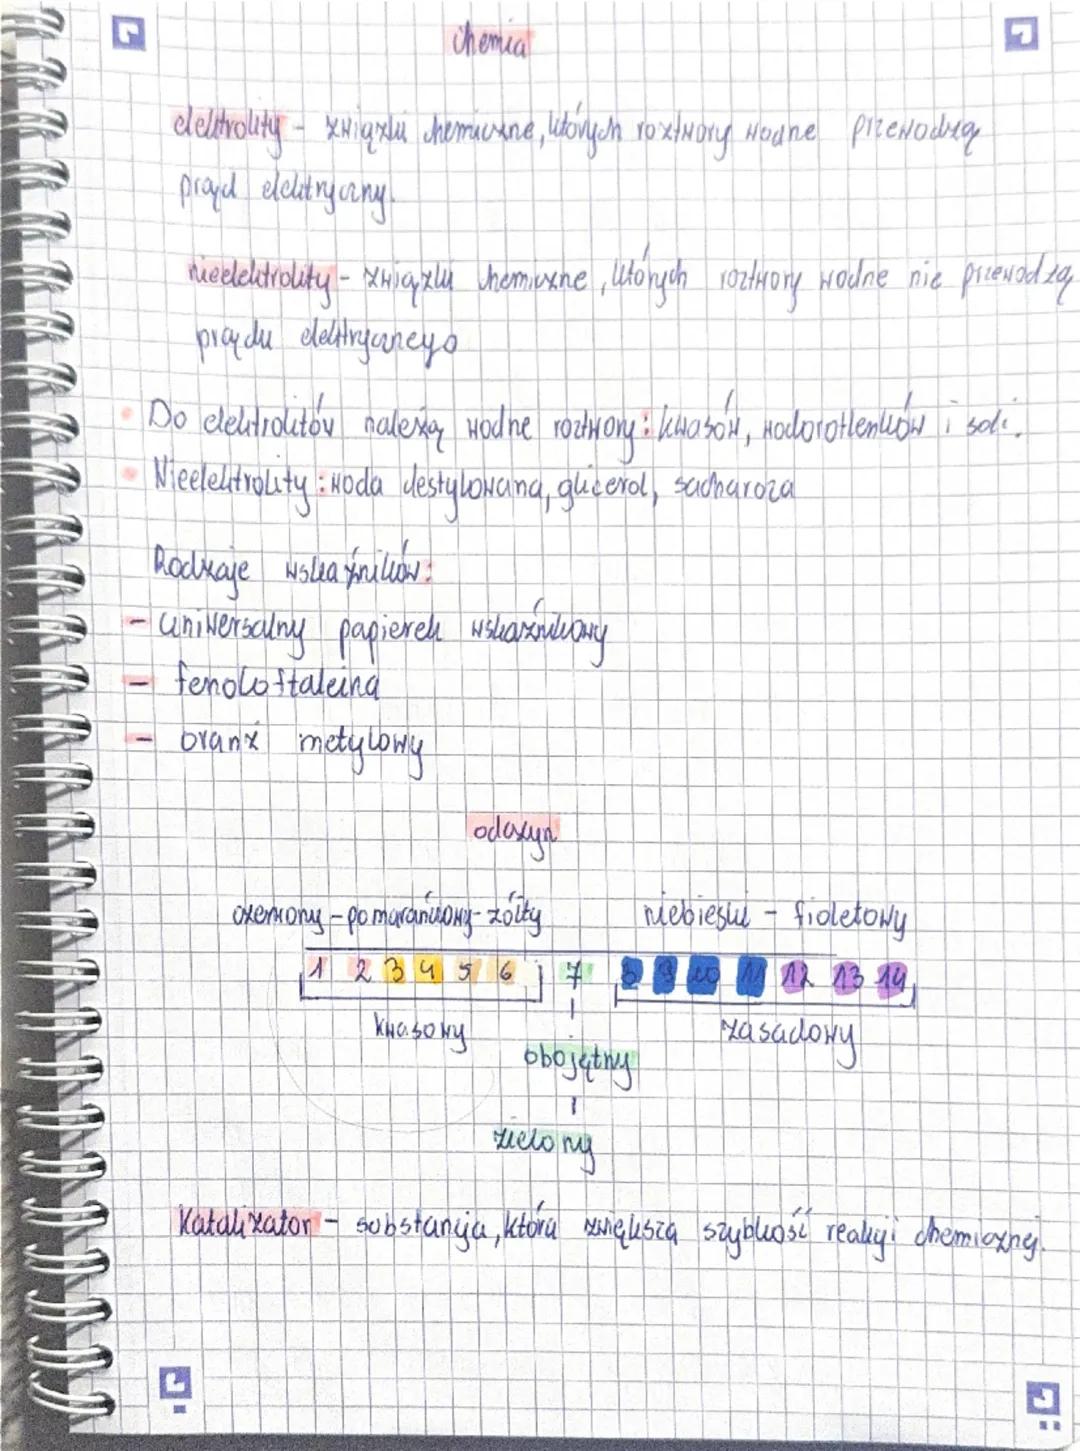 chemia
elektrolity - związki chemiczne, których roztwory wodne przewodzą
prąd elektryczny.
nieelektrolity - związki chemiczne, których roztwory wodne nie przewodzą
prądu elektrycznego
• Do elektrolitów należą wodne roztwory: kwasów, wodorotlenków i soli.
• Nieelektrolity: woda destylowana, glicerol, sacharoza
Rodzaje wskaźników:
- uniwersalny papierek wskaźnikowy
- fenoloftaleina
- oranż metylowy
odczyn
czerwony - pomarańczowy - żółty niebieski - fioletowy
1 2 3 4 5 6 7 8 9 10 11 12 13 14
kwasowy zasadowy
obojętny
zielony
Katalizator - substancja, która zwiększa szybkość reakcji chemicznej.